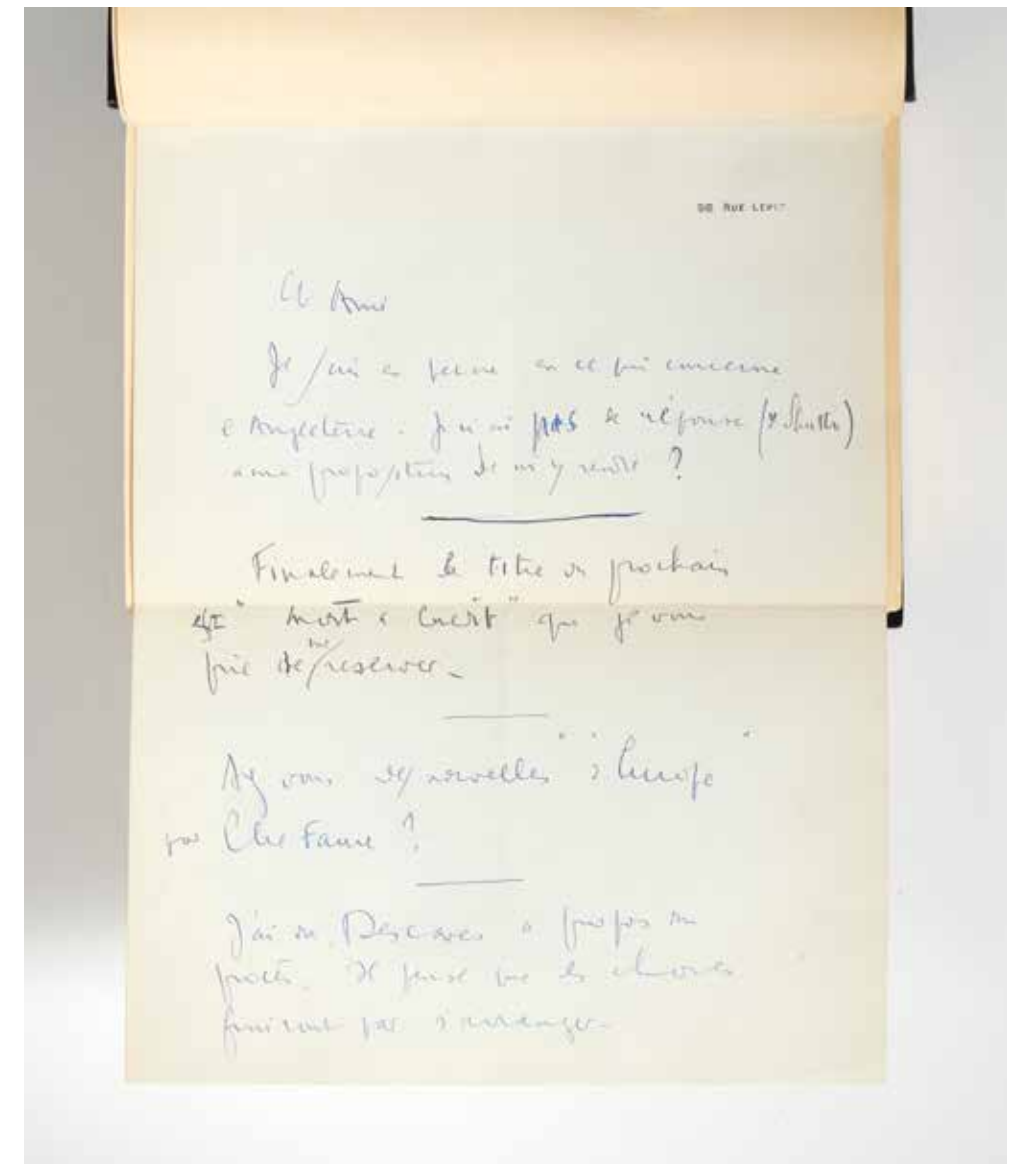 98 RUE LEPIC
Ch Ami
Je suis en panne en ce qui concerne
l'Angleterre. Je n'ai pas de réponse
à ma proposition de m'y rendre ?
Finalement le titre du prochain
est " Mort à Crédit " que je vous
prie de me réserver_
Az vous des nouvelles " L'Europe "
par Elie Faure ?
J'ai vu Descaves à propos du
procès. Il pense que les choses
finiront par s'arranger_